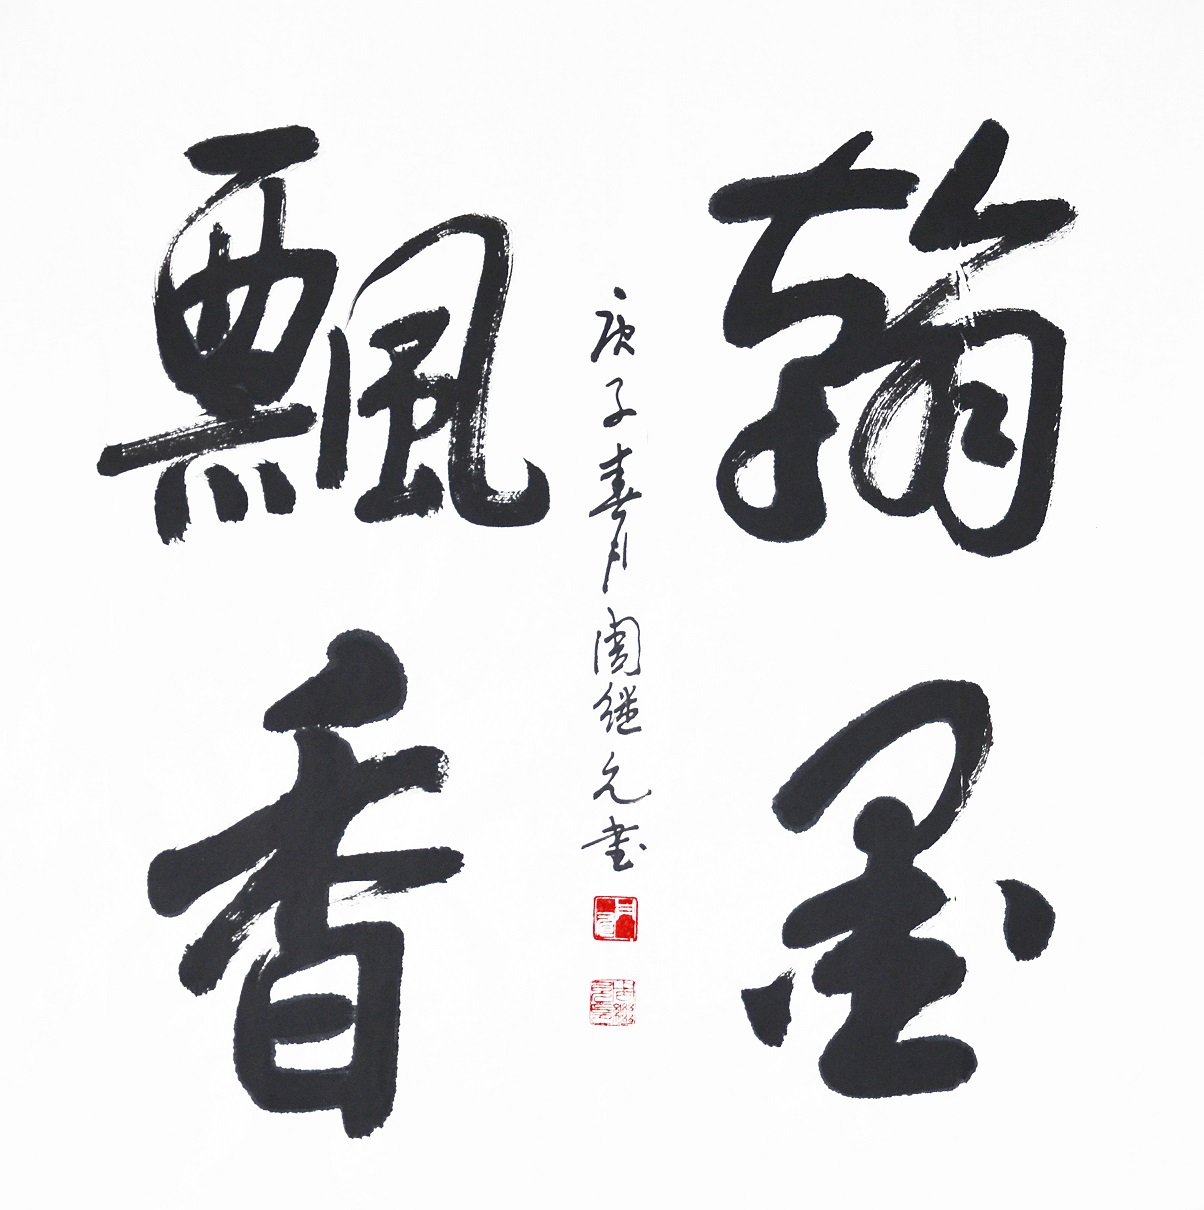 翰墨
飄香
庚子春月周继元书